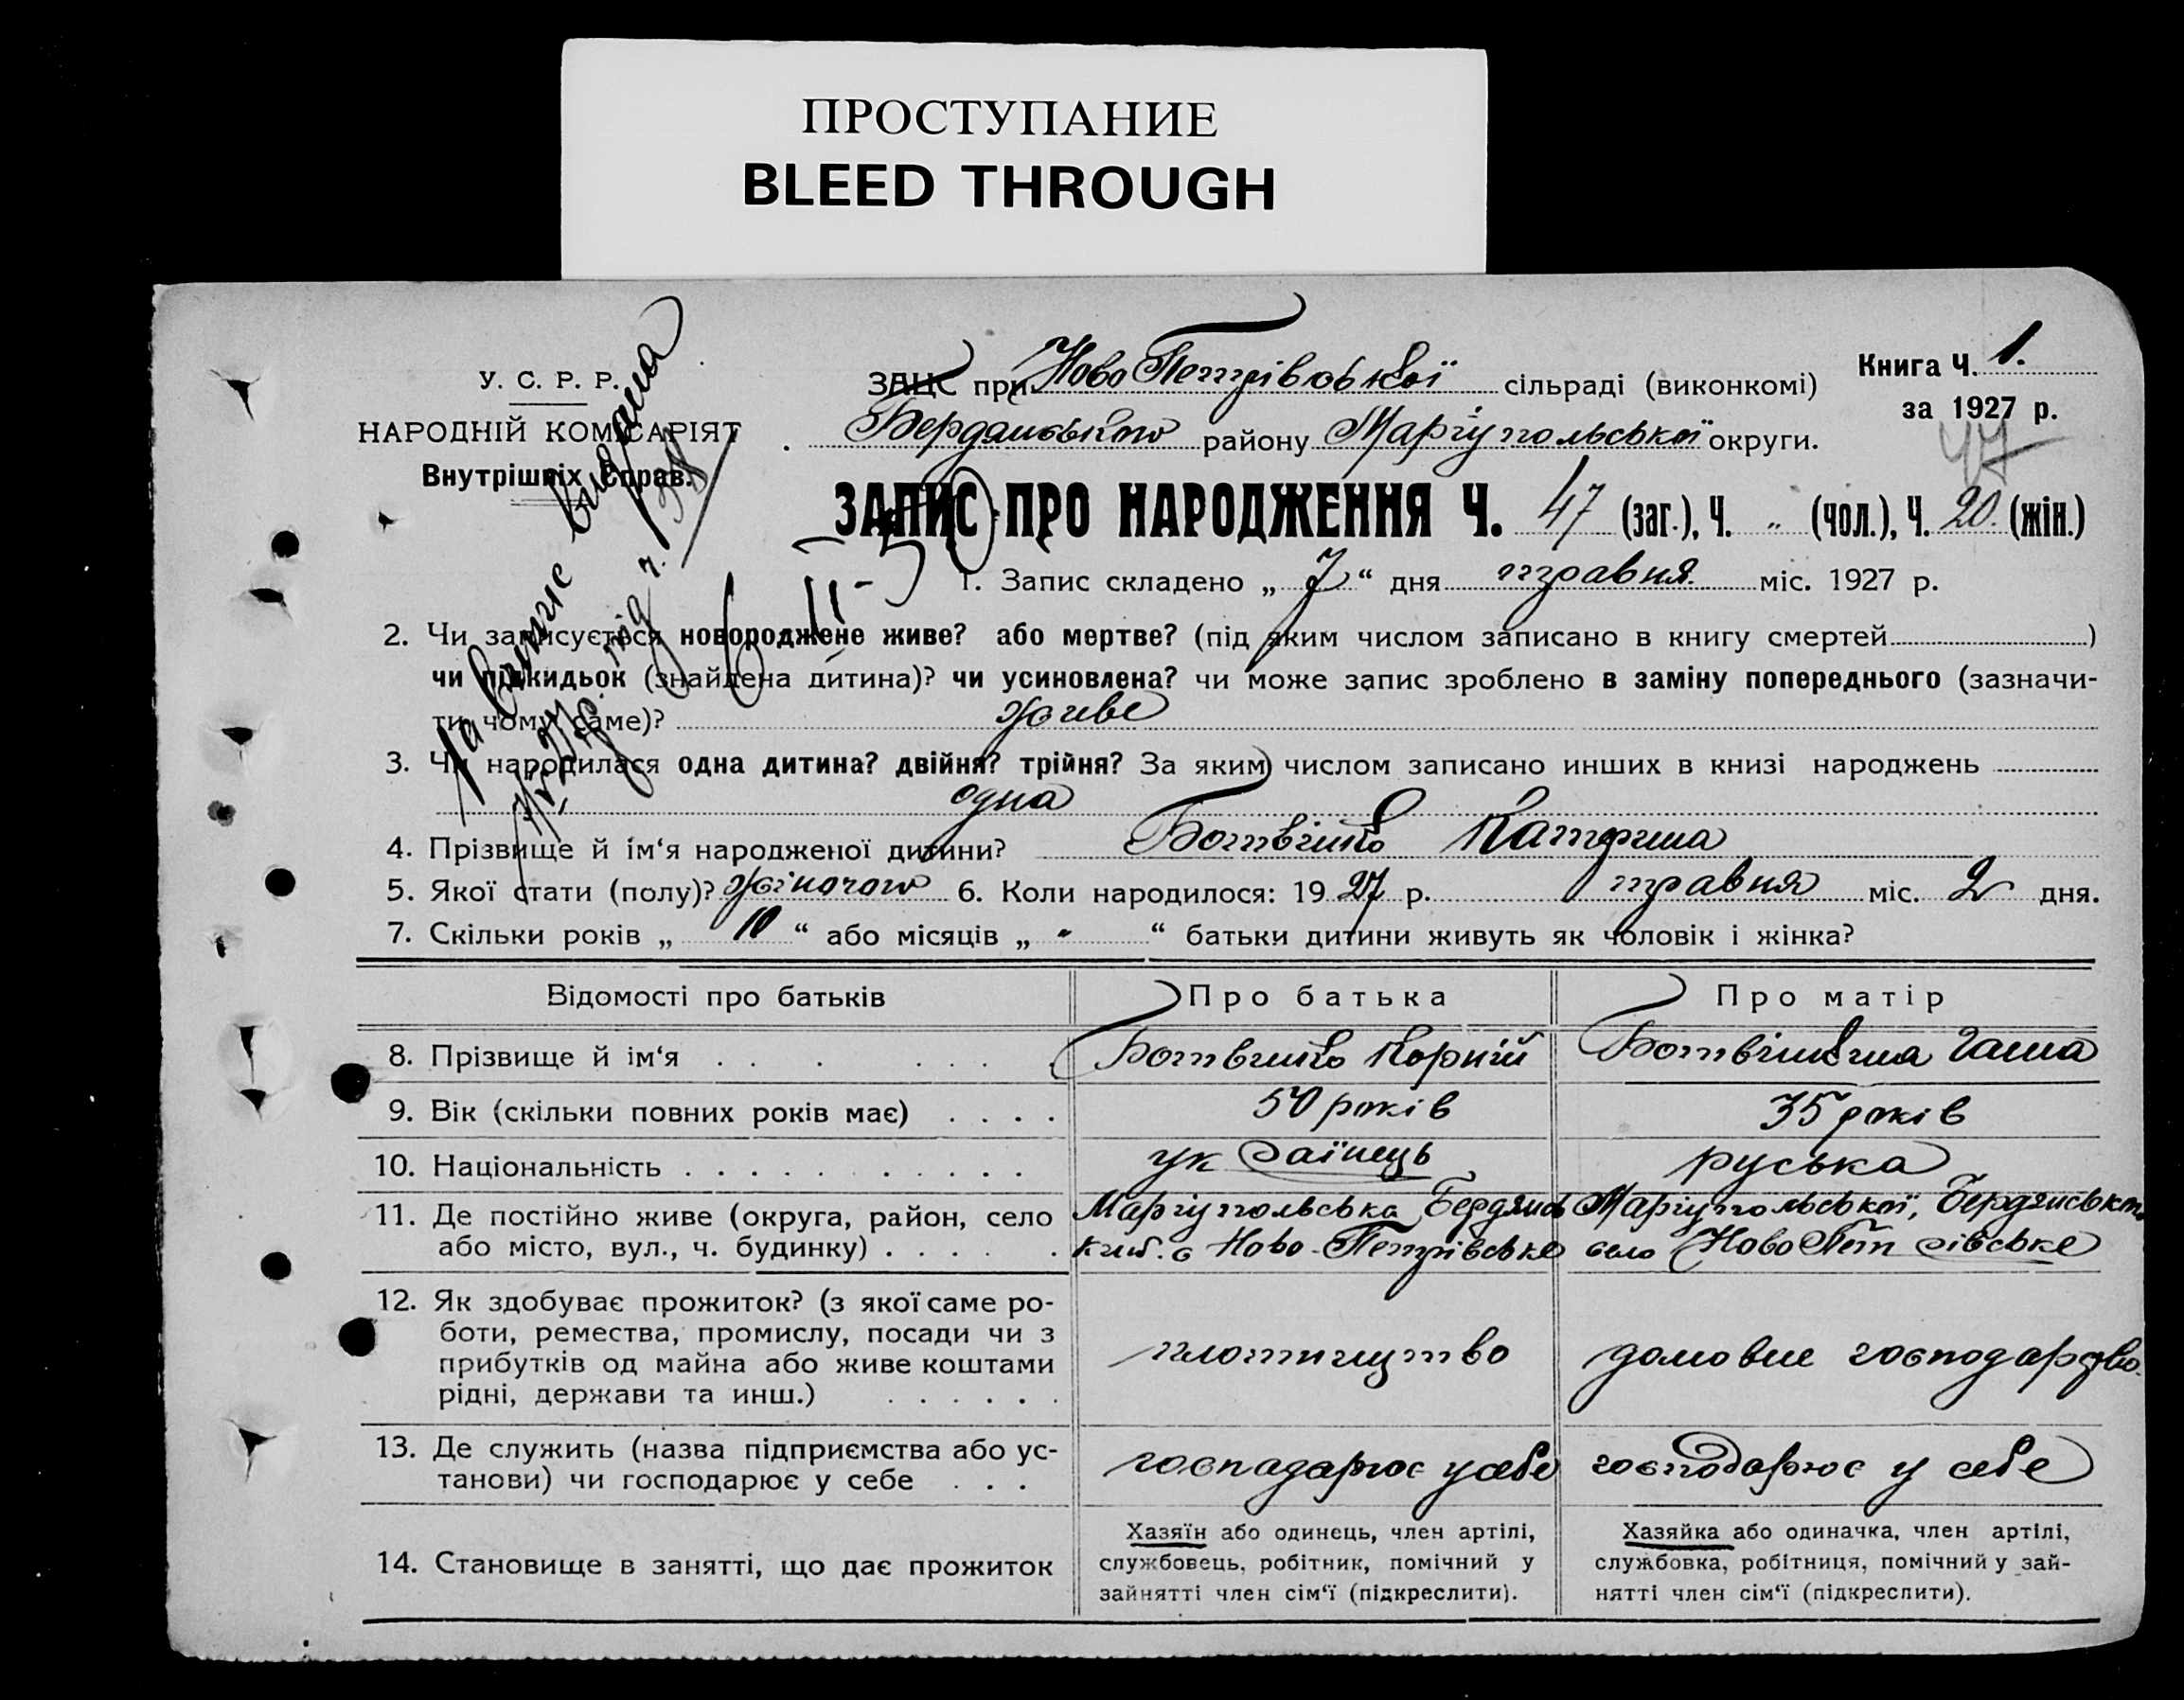 ПРОСТУПАНИЕ
BLEED THROUGH
У. С. Р. Р.
НАРОДНІЙ КОМІСАРІЯТ
Внутрішніх Справ.
ЗАЦС при Ново Петрівської сільраді (виконкомі)
Бердянського району Маріупольської округи.
Книга Ч. 1.
за 1927 р.
47
ЗАПИС ПРО НАРОДЖЕННЯ Ч. 47 (заг.), Ч. „ (чол.), Ч. 20. (жін.)
1. Запис складено „ 7 “ дня травня міс. 1927 р.
2. Чи записується новороджене живе? або мертве? (під яким числом записано в книгу смертей )
чи підкидьок (знайдена дитина)? чи усиновлена? чи може запис зроблено в заміну попереднього (зазначи-
ти чому саме)? живе
3. Чи народилася одна дитина? двійня? трійня? За яким числом записано инших в книзі народжень
одна
4. Прізвище й ім‘я народженої дитини? Ботвінко Катерина
5. Якої стати (полу)? жіночого 6. Коли народилося: 1927 р. травня міс. 2 дня.
7. Скільки років „ 10 “ або місяців „ - “ батьки дитини живуть як чоловік і жінка?
Відомості про батьків Про батька Про матір
8. Прізвище й ім‘я . . . . . . Ботвинко Корній Ботвінкина Ганна
9. Вік (скільки повних років має) . . . . 50 років 35 років
10. Національність . . . . . . . . . . . українець руська
11. Де постійно живе (округа, район, село Маріупольська Бердянсь Маріупольської, Бердянського
або місто, вул., ч. будинку) . . . . . с Ново-Петрівське село Ново Петрівське
12. Як здобуває прожиток? (з якої саме ро-
боти, ремества, промислу, посади чи з
прибутків од майна або живе коштами
рідні, держави та инш.) . . . . . .
плотництво домовне господарство.
13. Де служить (назва підприємства або ус-
танови) чи господарює у себе . . .
госпадарює у себе господарює у себе
14. Становище в занятті, що дає прожиток
Хазяїн або одинець, член артілі,
службовець, робітник, помічний у
зайнятті член сім‘ї (підкреслити).
Хазяйка або одиначка, член артілі,
службовка, робітниця, помічний у зай-
нятті член сім‘ї (підкреслити).